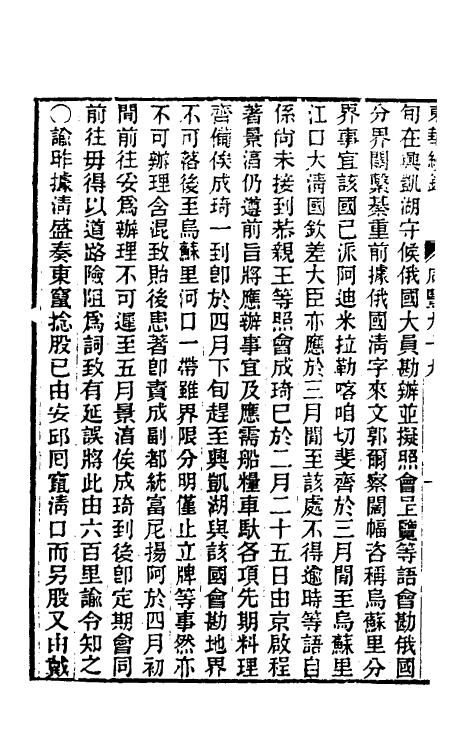 旬在興凱湖守候俄國大員勘辦並擬照會呈覽等語會勘俄國
分界關繫綦重前據俄國清字來文郭爾察闊幅咨稱烏蘇里分
界事宜該國已派阿迪米拉勒喀咱切斐齊於三月閒至烏蘇里
江口大清國欽差大臣亦應於三月閒至該處不得逾時等語自
係尚未接到恭親王等照會成琦巳於二月二十五日由京啟程
著景淳仍遵前旨將應辦事宜及應需船糧車馱各項先期料理
齊備俟成琦一到卽於四月下旬趕至興凱湖與該國會勘地界
不可落後至烏蘇里河口一帶雖界限分明僅止立牌等事然亦
不可辦理含混致貽後患著卽責成副都統富尼揚阿於四月初
間前往妥爲辦理不可遲至五月景淳俟成琦到後卽定期會同
前往毋得以道路險阻爲詞致有延誤將此由六百里諭令知之
〇諭昨據清盛奏東竄捻股已由安邱回竄淸口而另股又由戴